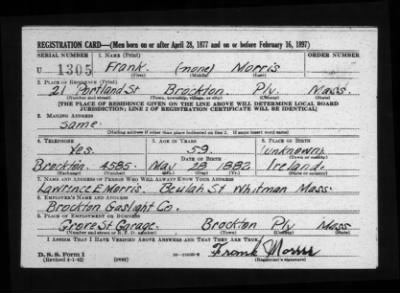 REGISTRATION CARD—(Men born on or after April 28, 1877 and on or before February 16, 1897)
SERIAL NUMBER 1. NAME (Print) ORDER NUMBER
U 1305 Frank. (none) Morris
(First) (Middle) (Last)
2. PLACE OF RESIDENCE (Print)
21 Portland St Brockton. Ply. Mass.
(Number and street) (Town, township, village, or city) (County) (State)
[THE PLACE OF RESIDENCE GIVEN ON THE LINE ABOVE WILL DETERMINE LOCAL BOARD
JURISDICTION; LINE 2 OF REGISTRATION CERTIFICATE WILL BE IDENTICAL]
3. MAILING ADDRESS
same.
[Mailing address if other than place indicated on line 2. If same insert word same]
4. TELEPHONE 5. AGE IN YEARS 6. PLACE OF BIRTH
Yes. 59. unknown
DATE OF BIRTH (Town or county)
Brockton. 4585. May 28 1882 Ireland.
(Exchange) (Number) (Mo.) (Day) (Yr.) (State or country)
7. NAME AND ADDRESS OF PERSON WHO WILL ALWAYS KNOW YOUR ADDRESS
Lawrence E Morris. Beulah St Whitman Mass.
8. EMPLOYER'S NAME AND ADDRESS
Brockton Gaslight Co.
9. PLACE OF EMPLOYMENT OR BUSINESS
Grove St Garage. Brockton Ply Mass
(Number and street or R. F. D. number) (Town) (County) (State)
I AFFIRM THAT I HAVE VERIFIED ABOVE ANSWERS AND THAT THEY ARE TRUE.
D. S. S. Form 1 Frank Morris
(Revised 4-1-42) (over) (Registrant's signature)